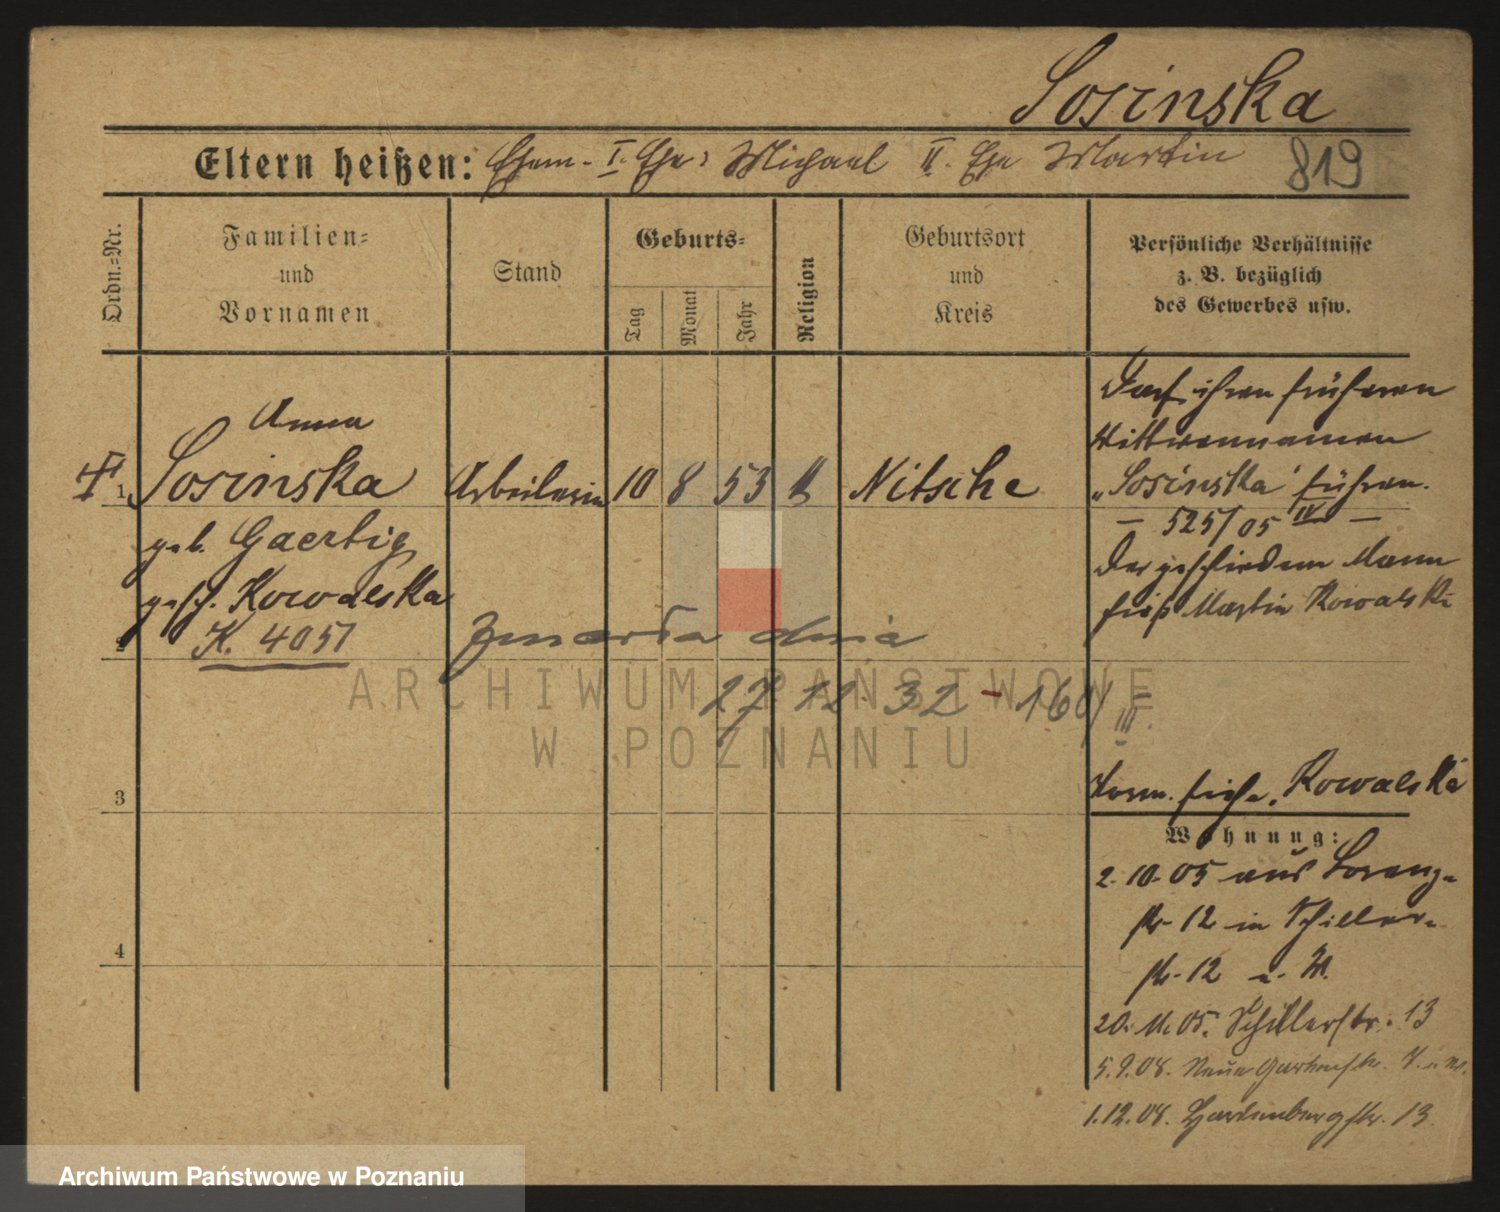 Sosinska
Eltern heißen: Ehem. I. Ehe: Michael II. Ehe Martin 819
Ordn.=Nr.
Familien=
und
Vornamen
Stand
Geburts=
Tag
Monat
Jahr
Religion
Geburtsort
und
Kreis
Persönliche Verhältnisse
z. B. bezüglich
des Gewerbes usw.
Anna
1 Sosinska Arbeiterin 10 8 53 Nitsche
geb. Gaertig
gesch. Kowalska
2 K. 4051
Darf ihren früheren
Wittwennamen
„Sosinska" führen.
– 525/05 IV –
Der geschiedene Mann
hieß Martin Kowalski
zmarła dnia
27 12 32 - 160/
III.
ARCHIWUM PAŃSTWOWE
W POZNANIU
3
Kowalska
Wohnung:
2.10.05 aus Lorenz=
str. 12 in Schiller=
str. 12 u. W.
20.11.05. Schillerstr. 13
5.9.08. Neue Gartenstr.
1.12.08. Hardenbergstr. 13
4
Archiwum Państwowe w Poznaniu